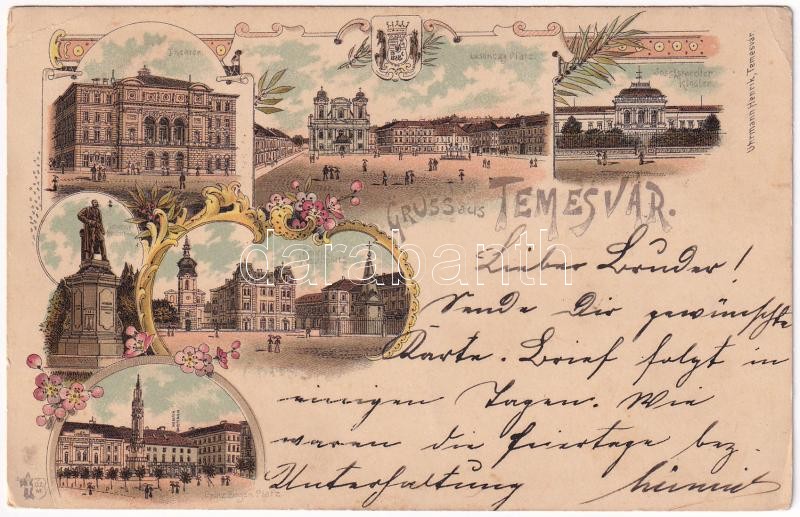 Theater
Losonczy Platz.
Josefstaedter
Kloster
Uhrmann Henrik, Temesvár.
GRUSS aus TEMESVÁR.
darabanth
Lieber Bruder!
Sende Dir gewünschte
Karte. Brief folgt in
einigen Tagen. Wie
waren die Feiertage bez.
Unterhaltung
Prinz Eugen Platz